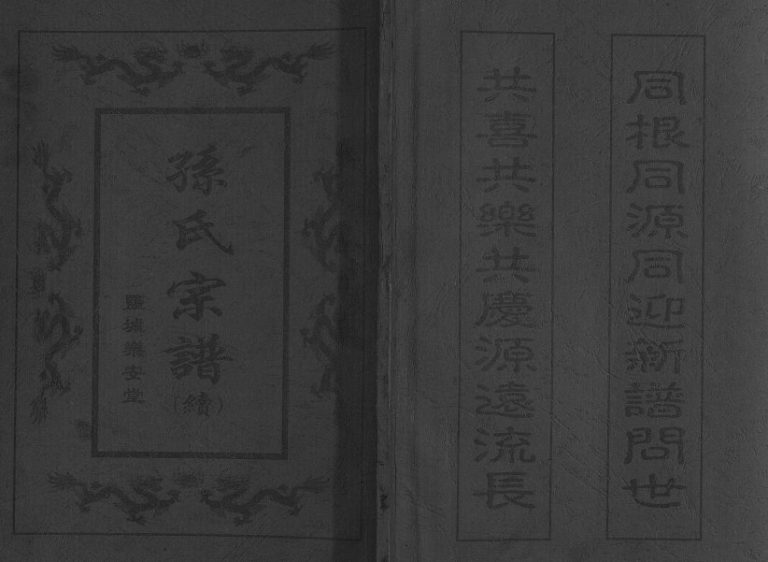 同根同源同迎新譜問世
共喜共樂共慶源遠流長
孫氏宗譜
(續)
鹽城樂安堂